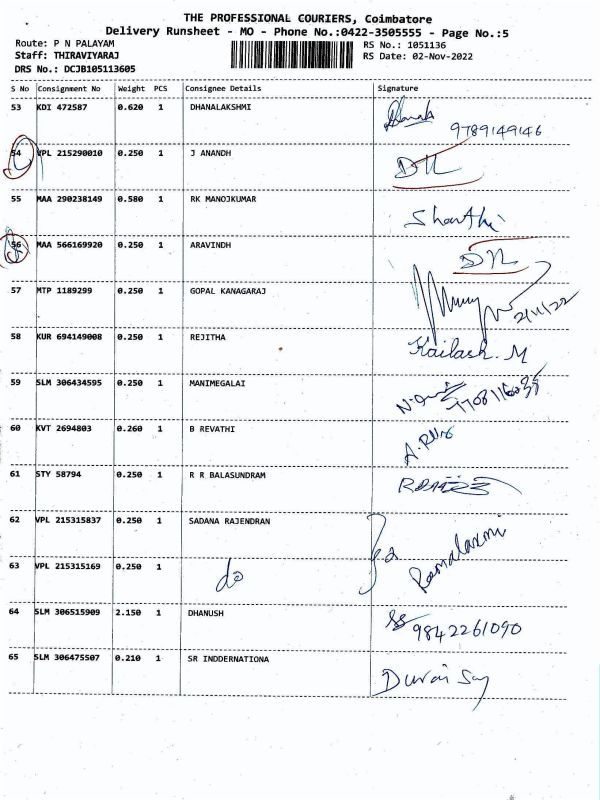 THE PROFESSIONAL COURIERS, Coimbatore
Delivery Runsheet - MO - Phone No.:0422-3505555 - Page No.:5
Route: P N PALAYAM
RS No.: 1051136
Staff: THIRAVIYARAJ
RS Date: 02-Nov-2022
DRS No.: DCJB105113605
S No Consignment No Weight PCS Consignee Details Signature
53 KDI 472587 0.620 1 DHANALAKSHMI
9789149146
54 VPL 215290010 0.250 1 J ANANDH
DL
55 MAA 290238149 0.580 1 RK MANOJKUMAR
Shanthi
56 MAA 566169920 0.250 1 ARAVINDH
DL
57 MTP 1189299 0.250 1 GOPAL KANAGARAJ
2/11/22
58 KUR 694149008 0.250 1 REJITHA
Kailash. M
59 SLM 306434595 0.250 1 MANIMEGALAI
60 KVT 2694803 0.260 1 B REVATHI
61 STY 58794 0.250 1 R R BALASUNDRAM
62 VPL 215315837 0.250 1 SADANA RAJENDRAN
Ramalaxmi
63 VPL 215315169 0.250 1 do
64 SLM 306515909 2.150 1 DHANUSH
9842261090
65 SLM 306475507 0.210 1 SR INDDERNATIONA
Durai Say